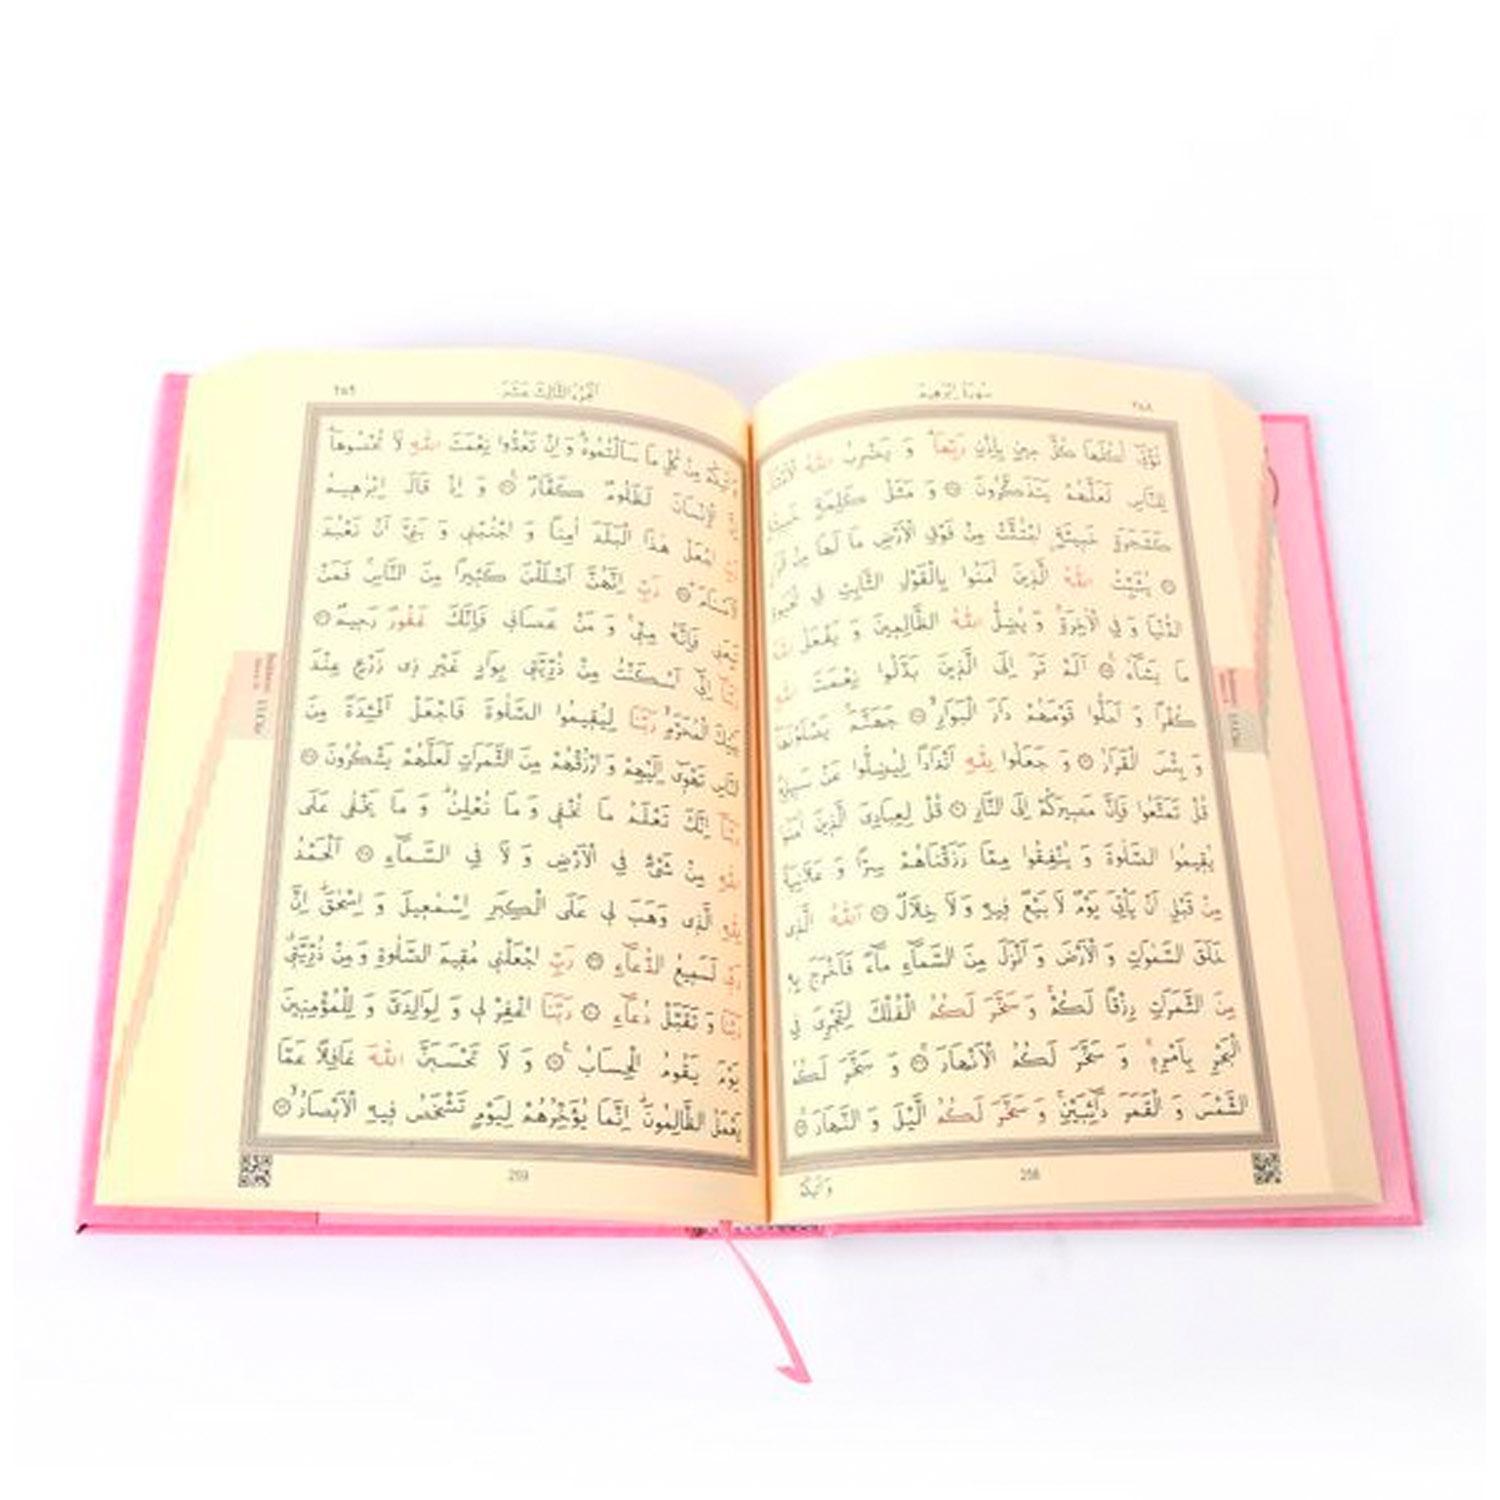 ٢٥٨
سورة ابرهيم
تُؤْتِى اُكُلَهَا كُلَّ حِينٍ بِاِذْنِ رَبِّهَا وَ يَضْرِبُ اللّٰهُ الْاَمْثَالَ
لِلنَّاسِ لَعَلَّهُمْ يَتَذَكَّرُونَ ۝ وَ مَثَلُ كَلِمَةٍ خَبِيثَةٍ
كَشَجَرَةٍ خَبِيثَةٍ اجْتُثَّتْ مِنْ فَوْقِ الْاَرْضِ مَا لَهَا مِنْ قَرَارٍ
۝ يُثَبِّتُ اللّٰهُ الَّذِينَ اٰمَنُوا بِالْقَوْلِ الثَّابِتِ فِى الْحَيٰوةِ
الدُّنْيَا وَ فِى الْاٰخِرَةِ وَ يُضِلُّ اللّٰهُ الظَّالِمِينَ وَ يَفْعَلُ اللّٰهُ
مَا يَشَآءُ ۝ اَلَمْ تَرَ اِلَى الَّذِينَ بَدَّلُوا نِعْمَتَ اللّٰهِ
كُفْرًا وَ اَحَلُّوا قَوْمَهُمْ دَارَ الْبَوَارِ ۝ جَهَنَّمَ يَصْلَوْنَهَا
وَ بِئْسَ الْقَرَارُ ۝ وَ جَعَلُوا لِلّٰهِ اَنْدَادًا لِيُضِلُّوا عَنْ سَبِيلِهِ
قُلْ تَمَتَّعُوا فَاِنَّ مَصِيرَكُمْ اِلَى النَّارِ ۝ قُلْ لِعِبَادِىَ الَّذِينَ اٰمَنُوا
يُقِيمُوا الصَّلٰوةَ وَ يُنْفِقُوا مِمَّا رَزَقْنَاهُمْ سِرًّا وَ عَلَانِيَةً
مِنْ قَبْلِ اَنْ يَاْتِىَ يَوْمٌ لَا بَيْعٌ فِيهِ وَ لَا خِلَالٌ ۝ اَللّٰهُ الَّذِى
خَلَقَ السَّمٰوَاتِ وَ الْاَرْضَ وَ اَنْزَلَ مِنَ السَّمَآءِ مَآءً فَاَخْرَجَ بِهِ
مِنَ الثَّمَرَاتِ رِزْقًا لَكُمْ وَ سَخَّرَ لَكُمُ الْفُلْكَ لِتَجْرِىَ فِى
الْبَحْرِ بِاَمْرِهِ وَ سَخَّرَ لَكُمُ الْاَنْهَارَ ۝ وَ سَخَّرَ لَكُمُ
الشَّمْسَ وَ الْقَمَرَ دَآئِبَيْنِ وَ سَخَّرَ لَكُمُ الَّيْلَ وَ النَّهَارَ ۝
وَ اٰتٰيكُمْ
258
الجزء الثالث عشر
٢٥٩
وَ اٰتٰيكُمْ مِنْ كُلِّ مَا سَاَلْتُمُوهُ وَ اِنْ تَعُدُّوا نِعْمَتَ اللّٰهِ لَا تُحْصُوهَا
اِنَّ الْاِنْسَانَ لَظَلُومٌ كَفَّارٌ ۝ وَ اِذْ قَالَ اِبْرٰهِيمُ
رَبِّ اجْعَلْ هٰذَا الْبَلَدَ اٰمِنًا وَ اجْنُبْنِى وَ بَنِىَّ اَنْ نَعْبُدَ
الْاَصْنَامَ ۝ رَبِّ اِنَّهُنَّ اَضْلَلْنَ كَثِيرًا مِنَ النَّاسِ فَمَنْ
تَبِعَنِى فَاِنَّهُ مِنِّى وَ مَنْ عَصَانِى فَاِنَّكَ غَفُورٌ رَحِيمٌ ۝
رَبَّنَا اِنِّى اَسْكَنْتُ مِنْ ذُرِّيَّتِى بِوَادٍ غَيْرِ ذِى زَرْعٍ عِنْدَ
بَيْتِكَ الْمُحَرَّمِ رَبَّنَا لِيُقِيمُوا الصَّلٰوةَ فَاجْعَلْ اَفْئِدَةً مِنَ
النَّاسِ تَهْوِى اِلَيْهِمْ وَ ارْزُقْهُمْ مِنَ الثَّمَرَاتِ لَعَلَّهُمْ يَشْكُرُونَ ۝
رَبَّنَا اِنَّكَ تَعْلَمُ مَا نُخْفِى وَ مَا نُعْلِنُ وَ مَا يَخْفٰى عَلَى
اللّٰهِ مِنْ شَىْءٍ فِى الْاَرْضِ وَ لَا فِى السَّمَآءِ ۝ اَلْحَمْدُ
لِلّٰهِ الَّذِى وَهَبَ لِى عَلَى الْكِبَرِ اِسْمٰعِيلَ وَ اِسْحٰقَ اِنَّ
رَبِّى لَسَمِيعُ الدُّعَآءِ ۝ رَبِّ اجْعَلْنِى مُقِيمَ الصَّلٰوةِ وَ مِنْ ذُرِّيَّتِى
رَبَّنَا وَ تَقَبَّلْ دُعَآءِ ۝ رَبَّنَا اغْفِرْ لِى وَ لِوَالِدَىَّ وَ لِلْمُؤْمِنِينَ
يَوْمَ يَقُومُ الْحِسَابُ ۝ وَ لَا تَحْسَبَنَّ اللّٰهَ غَافِلًا عَمَّا
يَعْمَلُ الظَّالِمُونَ اِنَّمَا يُؤَخِّرُهُمْ لِيَوْمٍ تَشْخَصُ فِيهِ الْاَبْصَارُ ۝
259